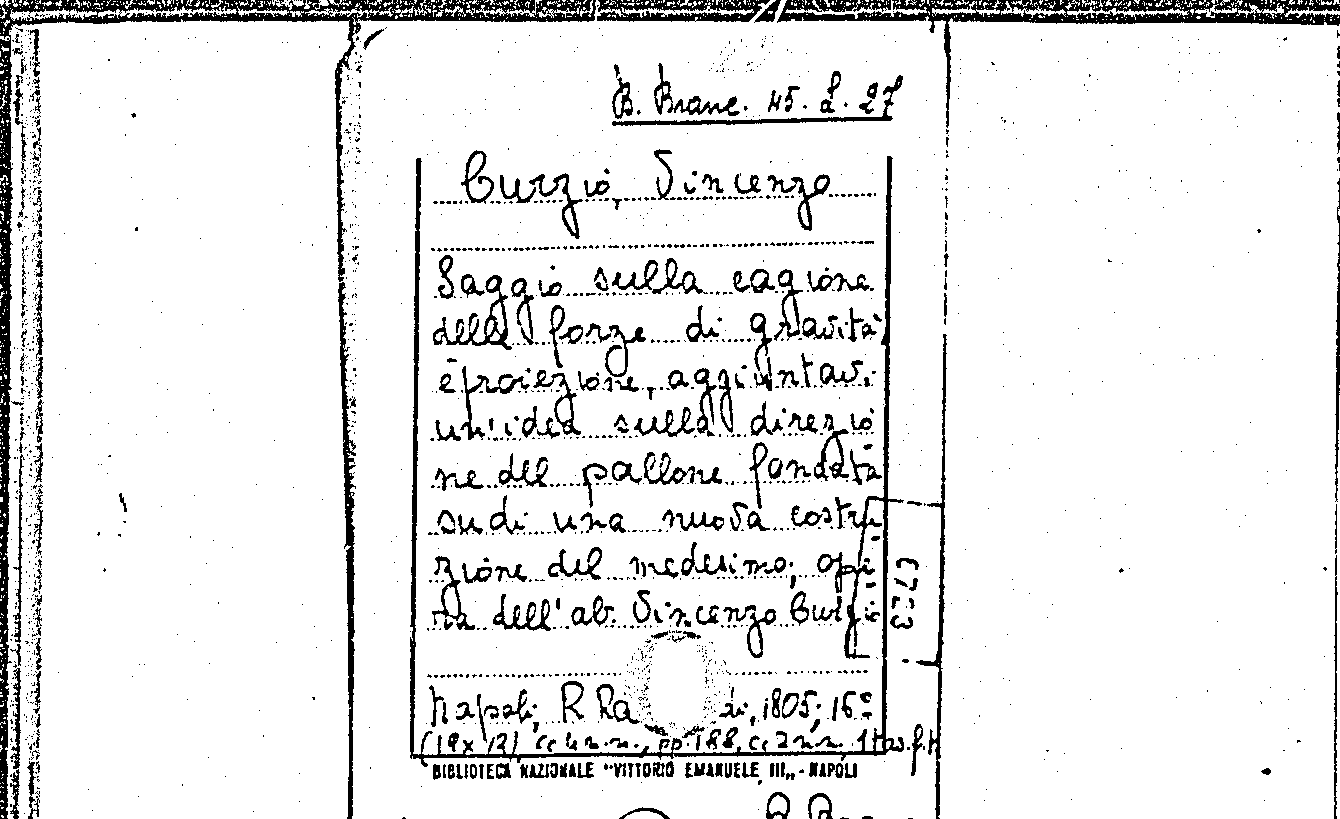 B. Branc. 45. L. 27
Curzio, Vincenzo
Saggio sulla cagione
delle forze di gravità
e proiezione, aggiuntavi
un'idea sulla direzio
ne del pallone fondata
su di una nuova costru
zione del medesimo; ope
ra dell'ab. Vincenzo Curzio
Napoli, R Ra di, 1805; 16°
(19x12) cc 4 n.n., pp. 188, cc 2 n.n. 1 tav. f.t.
BIBLIOTECA NAZIONALE "VITTORIO EMANUELE III„ - NAPOLI